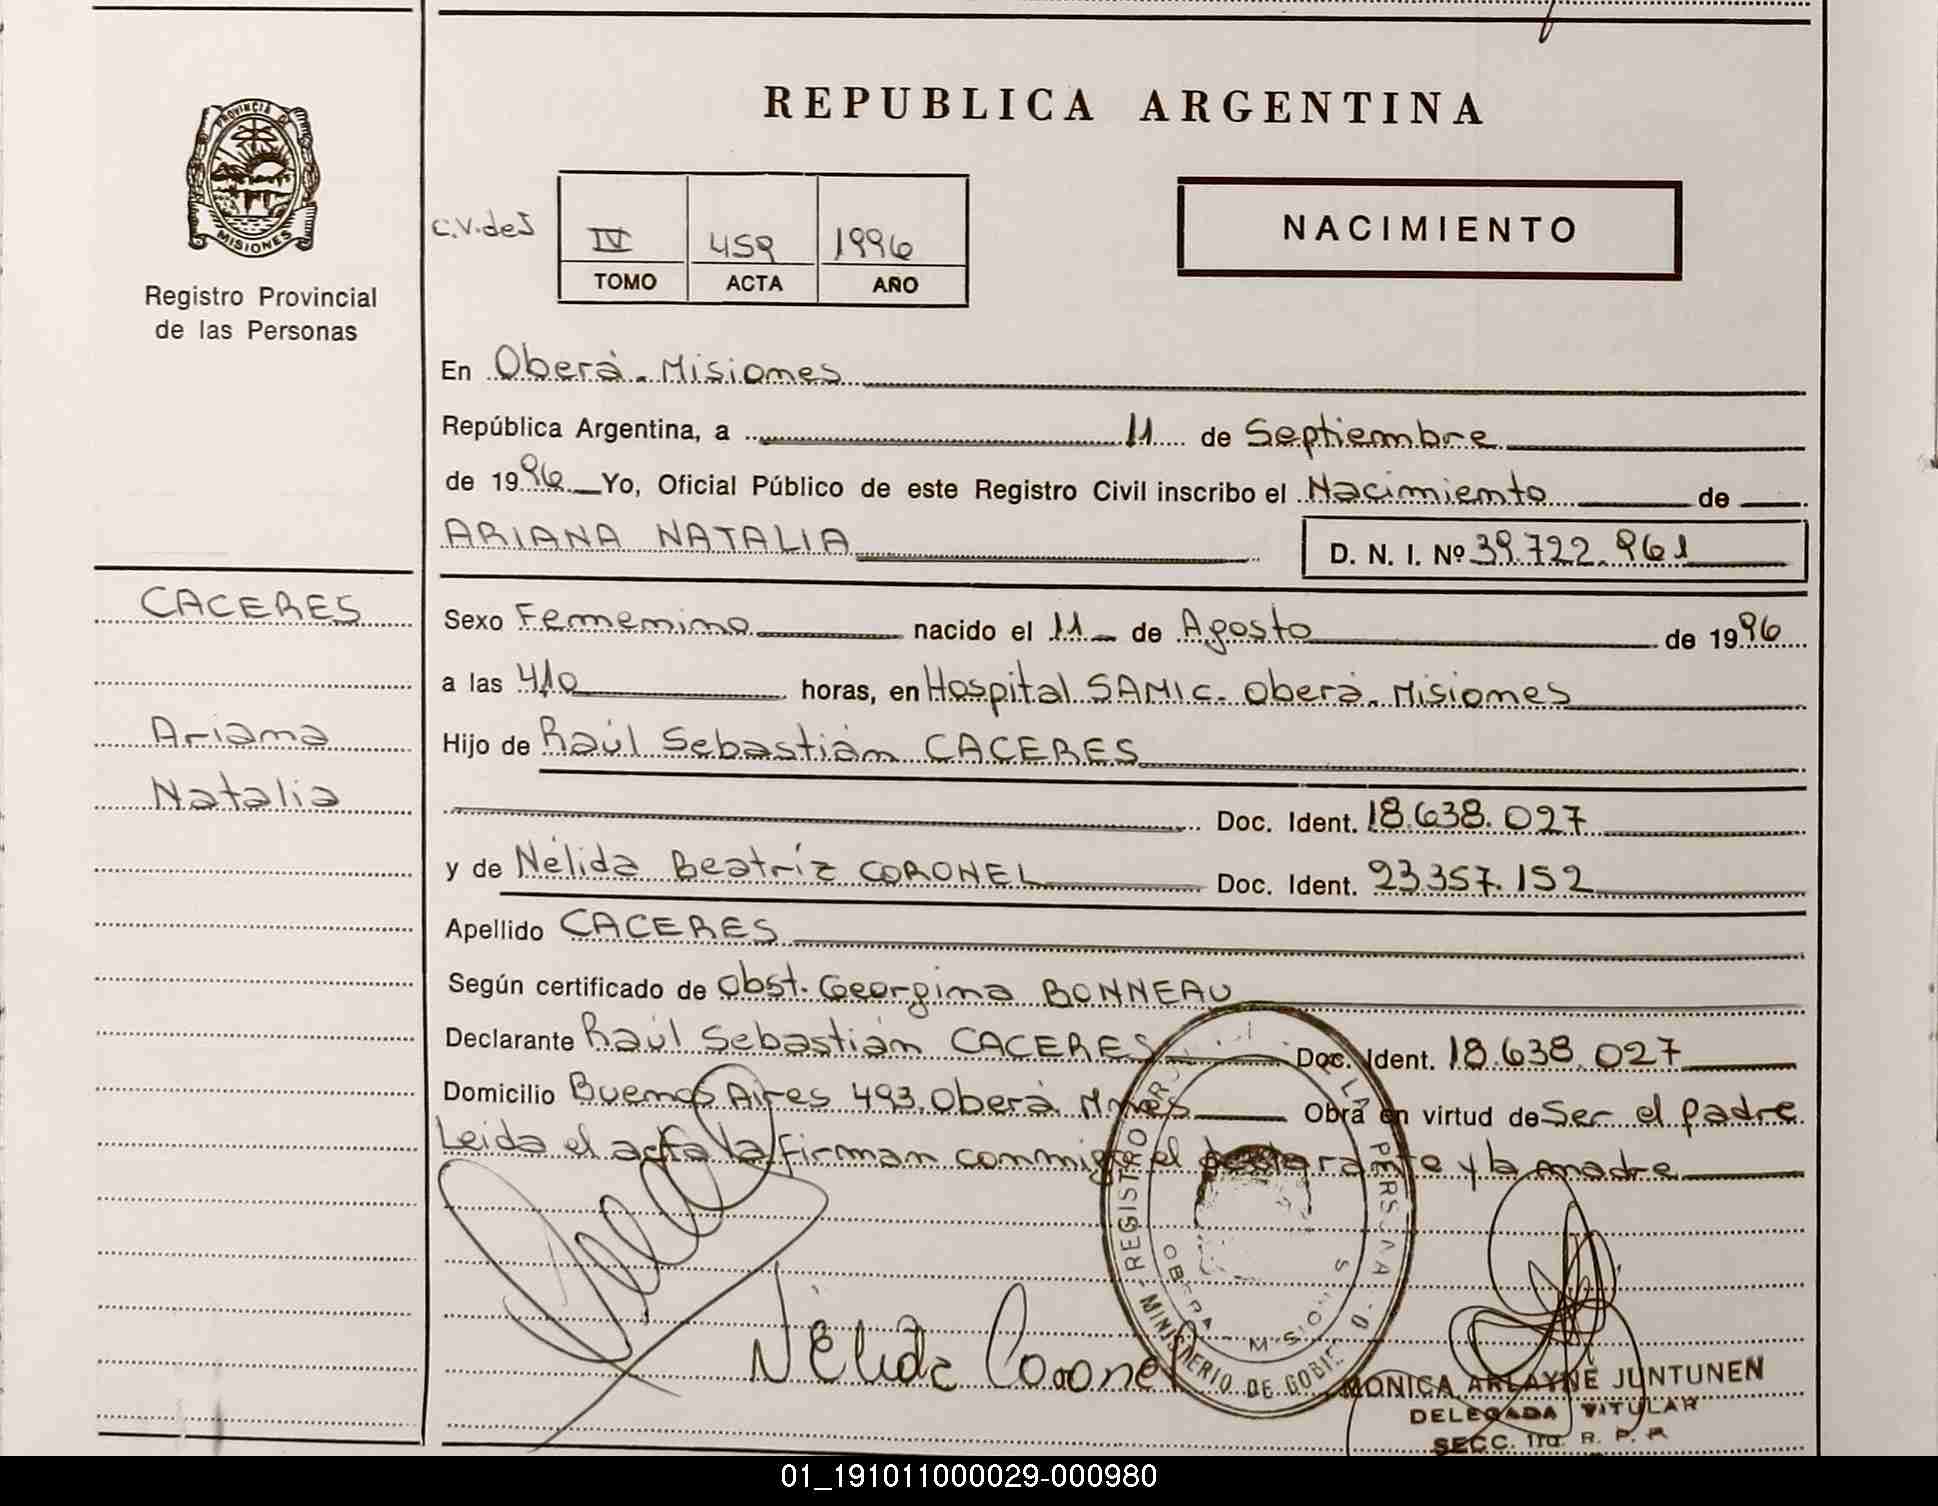 REPUBLICA ARGENTINA
PROVINCIA DE
MISIONES
Registro Provincial
de las Personas
C.V.deJ
IV 459 1996
TOMO ACTA AÑO
NACIMIENTO
En Oberá. Misiones
República Argentina, a 11 de Septiembre
de 1996 Yo, Oficial Público de este Registro Civil inscribo el Nacimiento de
ARIANA NATALIA D. N. I. Nº 39.722.961
CACERES
Ariana
Natalia
Sexo Femenino nacido el 11 de Agosto de 1996
a las 4,10 horas, en Hospital SAMIC. Oberá. Misiones
Hijo de Raúl Sebastián CACERES
Doc. Ident. 18.638.027
y de Nélida Beatríz CORONEL Doc. Ident. 23.357.152
Apellido CACERES
Según certificado de Obst. Georgina BONNEAU
Declarante Raúl Sebastián CACERES Doc. Ident. 18.638.027
Domicilio Buenos Aires 493. Oberá Mnes Obra en virtud de Ser el padre
Leida el acta la firman conmigo el y la madre
Nélida Coronel
REGISTRO
MINISTERIO DE GOBIERNO
OBERA - MISIONES
MONICA ARLAYNE JUNTUNEN
DELEGADA TITULAR
SECC. 1ra. R. P. P.
01_191011000029-000980